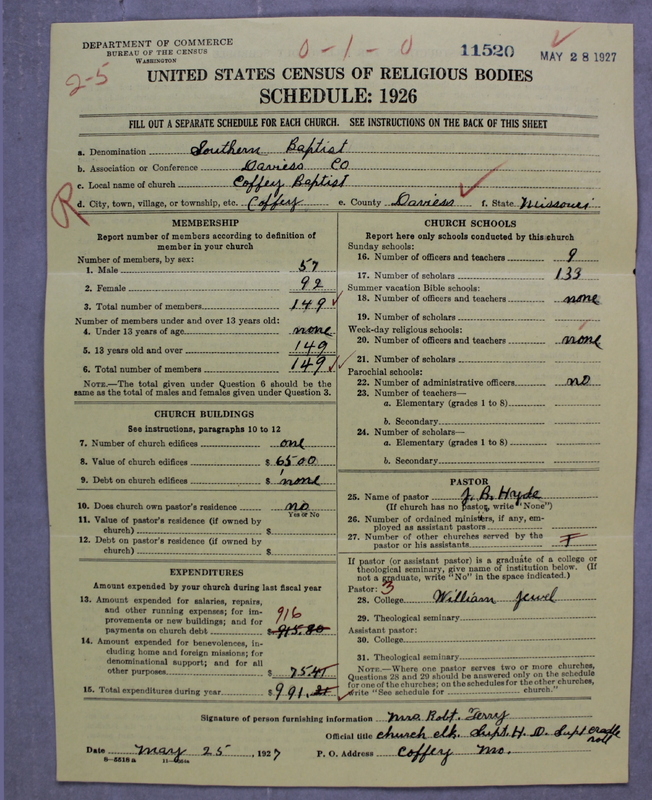 DEPARTMENT OF COMMERCE
BUREAU OF THE CENSUS
WASHINGTON
0-1-0
11520
MAY 28 1927
2-5
UNITED STATES CENSUS OF RELIGIOUS BODIES
SCHEDULE: 1926
FILL OUT A SEPARATE SCHEDULE FOR EACH CHURCH. SEE INSTRUCTIONS ON THE BACK OF THIS SHEET
a. Denomination Southern Baptist
b. Association or Conference Daviess CO
c. Local name of church Coffey Baptist
R
d. City, town, village, or township, etc. Coffey e. County Daviess f. State Missouri
MEMBERSHIP
Report number of members according to definition of
member in your church
Number of members, by sex:
1. Male 57
2. Female 92
3. Total number of members 149
Number of members under and over 13 years old:
4. Under 13 years of age none
5. 13 years old and over 149
6. Total number of members 149
NOTE.—The total given under Question 6 should be the
same as the total of males and females given under Question 3.
CHURCH BUILDINGS
See instructions, paragraphs 10 to 12
7. Number of church edifices one
8. Value of church edifices $ 6500
9. Debt on church edifices $ none
10. Does church own pastor's residence no
Yes or No
11. Value of pastor's residence (if owned by
church) $
12. Debt on pastor's residence (if owned by
church) $
EXPENDITURES
Amount expended by your church during last fiscal year
13. Amount expended for salaries, repairs,
and other running expenses; for im-
provements or new buildings; and for 916
payments on church debt $ 915.80
14. Amount expended for benevolences, in-
cluding home and foreign missions; for
denominational support; and for all
other purposes $ 75
15. Total expenditures during year $ 991.
CHURCH SCHOOLS
Report here only schools conducted by this church
Sunday schools:
16. Number of officers and teachers 9
17. Number of scholars 133
Summer vacation Bible schools:
18. Number of officers and teachers none
19. Number of scholars
Week-day religious schools:
20. Number of officers and teachers none
21. Number of scholars
Parochial schools:
22. Number of administrative officers no
23. Number of teachers—
a. Elementary (grades 1 to 8)
b. Secondary
24. Number of scholars—
a. Elementary (grades 1 to 8)
b. Secondary
PASTOR
25. Name of pastor J. B. Hyde
(If church has no pastor, write "None")
26. Number of ordained ministers, if any, em-
ployed as assistant pastors
27. Number of other churches served by the
pastor or his assistants
If pastor (or assistant pastor) is a graduate of a college or
theological seminary, give name of institution below. (If
not a graduate, write "No" in the space indicated.)
Pastor: 3
28. College William Jewel
29. Theological seminary
Assistant pastor:
30. College
31. Theological seminary
NOTE.—Where one pastor serves two or more churches,
Questions 28 and 29 should be answered only on the schedule
for one of the churches; on the schedules for the other churches,
write "See schedule for church."
Signature of person furnishing information Mrs. Robt. Terry
Official title church clk. Supt. H. D. Supt cradle
roll
Date May 25, 1927 P. O. Address Coffey Mo.
8—5518a